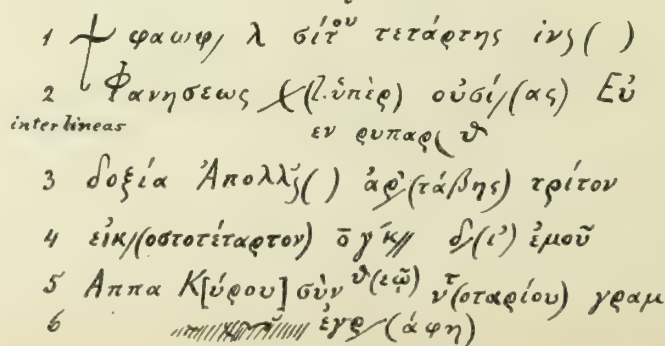 1 φαωφ/ λ σίτου τετάρτης ἰνς( )
2 Φανησεως (l. ὑπὲρ) οὐσί/(ας) Εὐ
interlineas εν ρυπαρ( θ
3 δοξία Ἀπολλς( ) ἀρ/(τάβης) τρίτον
4 εἰκ/(οστοτέταρτον) ō γ´κ// δ/(ι´) ἐμοῦ
5 Αππα Κ[ύρου] σὺν θ(εῷ) ντ(οταρίου) γραμ
6 ἐγρ/(άφη)